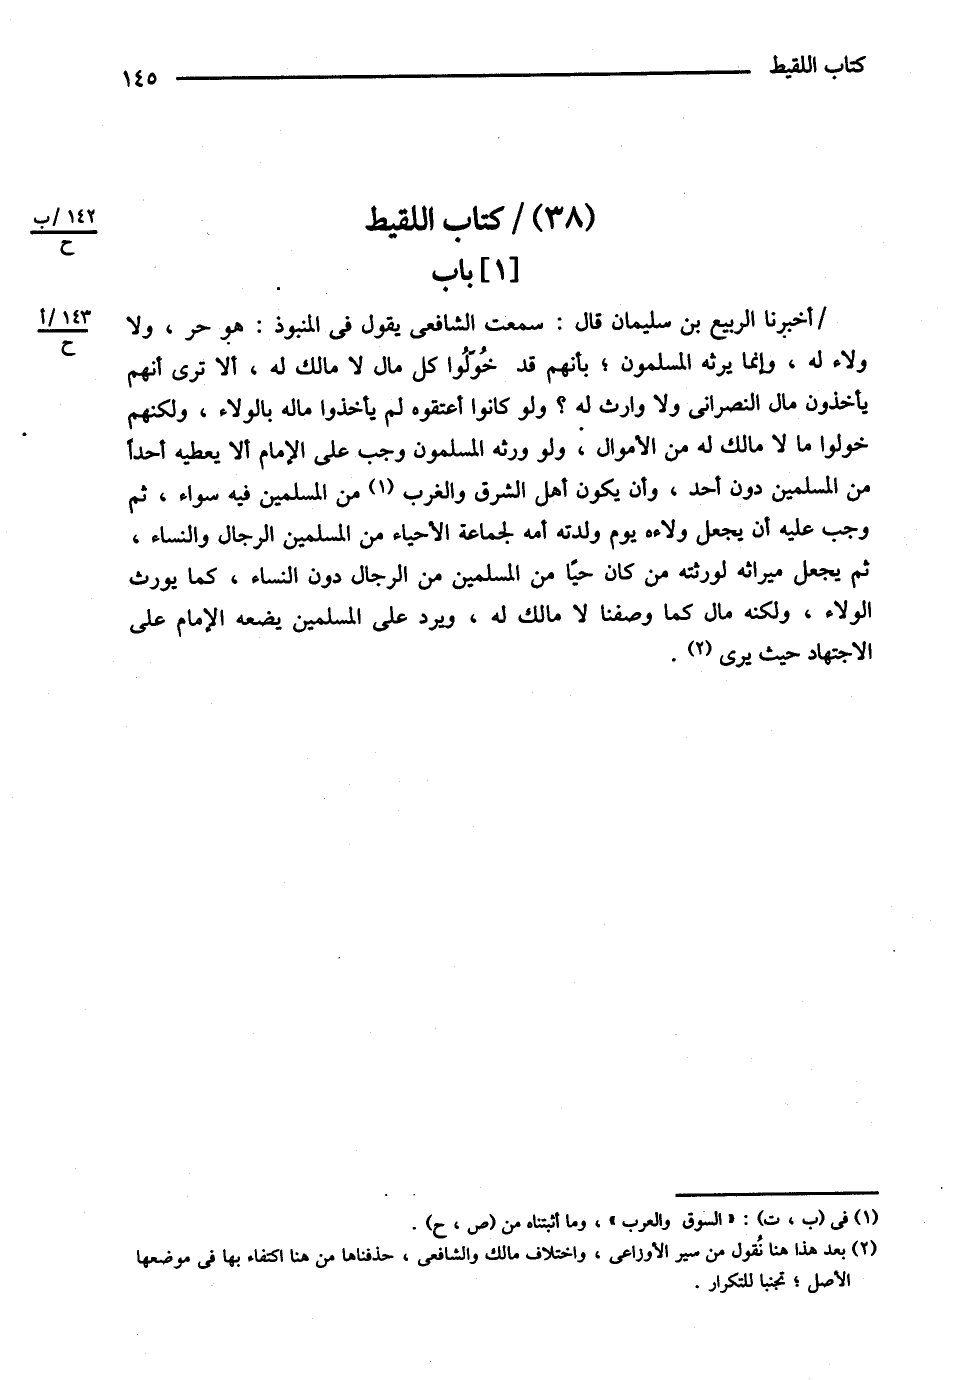 كتاب اللقيط ١٤٥
(٣٨) / كتاب اللقيط
١٤٢ /ب
ح
[١] باب
/ أخبرنا الربيع بن سليمان قال : سمعت الشافعى يقول فى المنبوذ : هو حر ، ولا
١٤٣ /أ
ح
ولاء له ، وإنما يرثه المسلمون ؛ بأنهم قد خُوِّلُوا كل مال لا مالك له ، ألا ترى أنهم
يأخذون مال النصرانى ولا وارث له ؟ ولو كانوا أعتقوه لم يأخذوا ماله بالولاء ، ولكنهم
خولوا ما لا مالك له من الأموال ، ولو ورثه المسلمون وجب على الإمام ألا يعطيه أحداً
من المسلمين دون أحد ، وأن يكون أهل الشرق والغرب (١) من المسلمين فيه سواء ، ثم
وجب عليه أن يجعل ولاءه يوم ولدته أمه لجماعة الأحياء من المسلمين الرجال والنساء ،
ثم يجعل ميراثه لورثته من كان حيًا من المسلمين من الرجال دون النساء ، كما يورث
الولاء ، ولكنه مال كما وصفنا لا مالك له ، ويرد على المسلمين يضعه الإمام على
الاجتهاد حيث يرى (٢) .
(١) فى (ب ، ت) : « السوق والعرب » ، وما أثبتناه من (ص ، ح) .
(٢) بعد هذا هنا نُقول من سير الأوزاعى ، واختلاف مالك والشافعى ، حذفناها من هنا اكتفاء بها فى موضعها
الأصل ؛ تجنبا للتكرار .